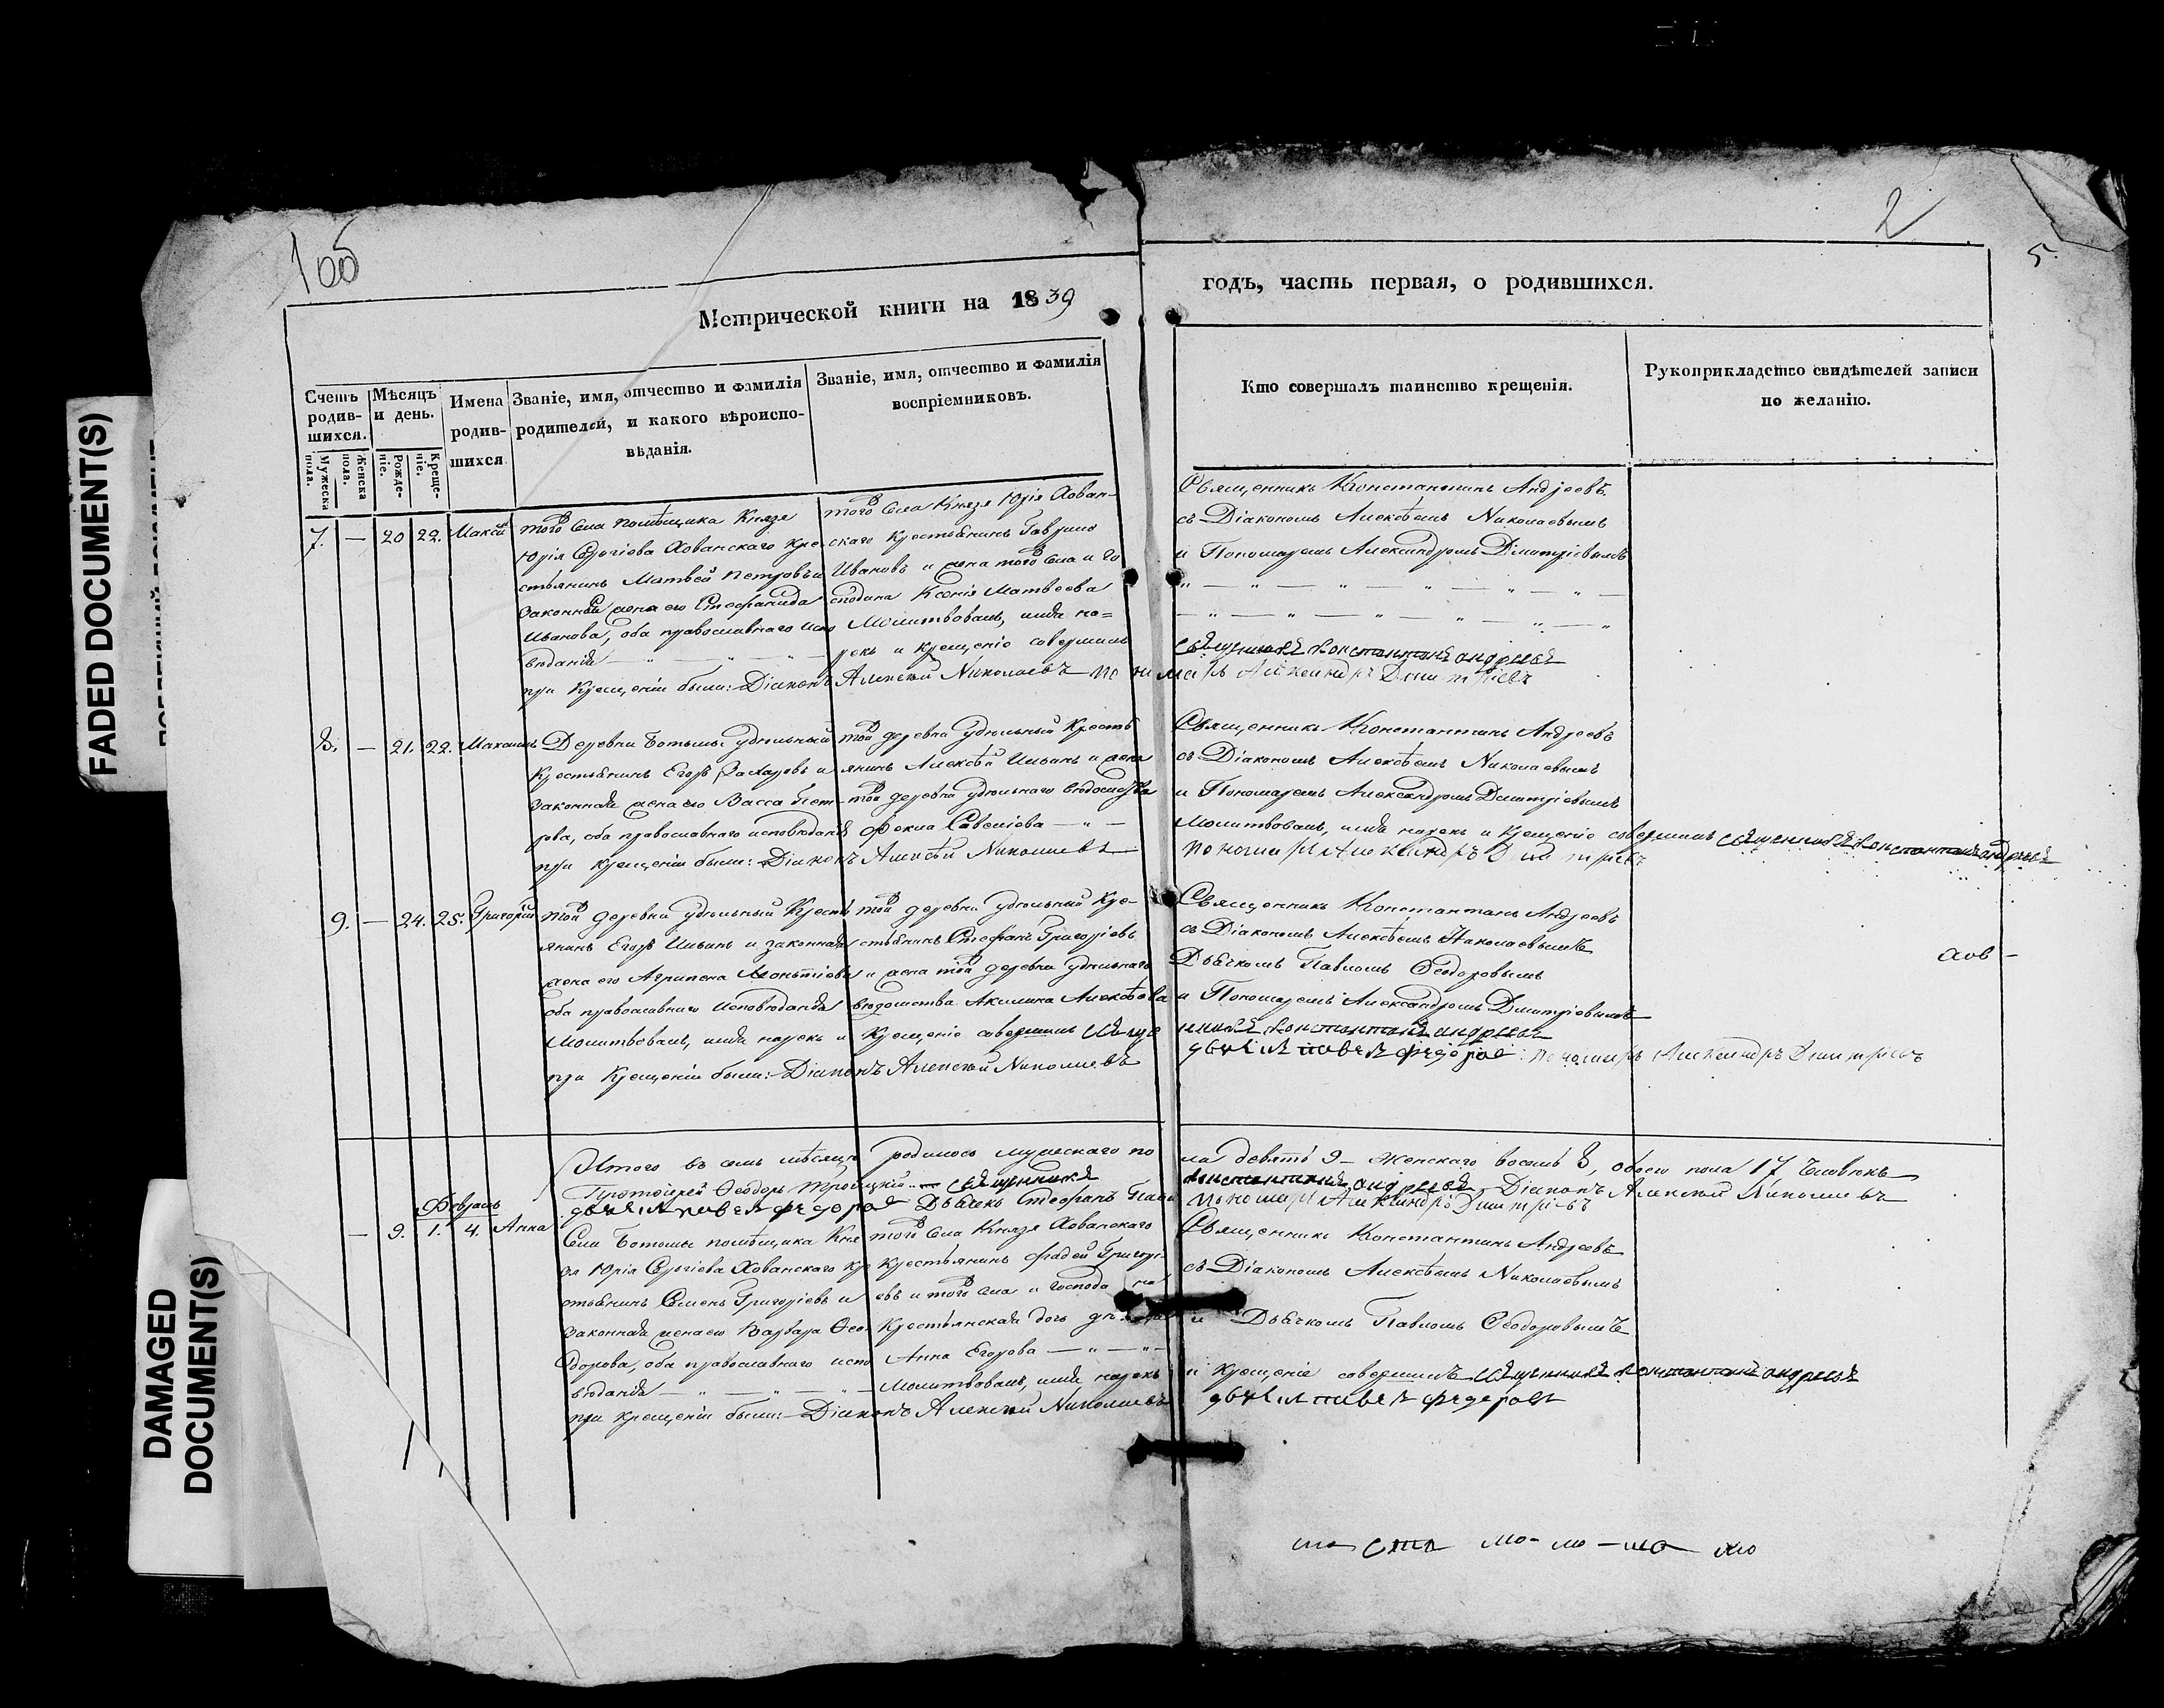 1об
2
5.
Метрической книги на 1839
годъ, часть первая, о родившихся.
Счетъ родившихся.
Мужеска пола.
Женска пола.
Мѣсяцъ и день.
Рождение.
Крещение.
Имена родившихся
Званіе, имя, отчество и фамилія
родителей, и какого вѣроиспо-
вѣданія.
Званіе, имя, отчество и фамилія
воспріемниковъ.
Кто совершалъ таинство крещенія.
Рукоприкладство свидѣтелей записи
по желанію.
7. — 20 22. Максим
того Села помѣщика Князя
Юрія Сергіева Хованскаго кре-
стьянинъ Матвей Петровъ и
законная жена его Стефанида
Иванова, оба православнаго испо
вѣданія
того Села Князя Юрія Хован-
скаго Крестьянинъ Гаврило
Ивановъ и жена того Села и го
сподина Ксенія Матвеева
Молитвовалъ, имя на=
рекъ и крещеніе совершилъ
Священникъ Константинъ Андреевъ
съ Діакономъ Алексѣемъ Николаевымъ
и Пономаремъ Александромъ Димитріевымъ
священникъ константинъ андреевъ
при Крещеніи были: Діаконъ Алексѣй Николаевъ пономарь Александръ Димитріевъ
8. — 21. 22.
Деревни Ботьмы удѣльный
Крестьянинъ Егоръ Захаровъ и
законная жена его Васса Пет-
рова, оба православнаго исповѣданія
той деревни удѣльный Кресть
янинъ Алексѣй Ильинъ и жена
той деревни удѣльнаго вѣдомства
Фекла Савеліева
Священникъ Константинъ Андреевъ
съ Діакономъ Алексѣемъ Николаевымъ
и Пономаремъ Александромъ Димитріевымъ
Молитвовалъ, имя нарекъ и крещеніе совершилъ священникъ константинъ андреевъ
при крещеніи были: Діаконъ Алексѣй Николаевъ
пономарь Александръ Димитріевъ
9. — 24. 25. Григорій
той деревни удѣльный Кресть
янинъ Егоръ Ильинъ и законная
жена его Агрипена Леонтіева
оба православнаго исповѣданія
той деревни удѣльный Кре-
стьянинъ Стефанъ Григоріевъ
и жена той деревни удѣльнаго
вѣдомства Акилина Алексѣева
Священникъ Константинъ Андреевъ
съ Діакономъ Алексѣемъ Николаевымъ
Дьячкомъ Павломъ Ѳеодоровымъ
и Пономаремъ Александромъ Димитріевымъ
Молитвовалъ, имя нарекъ и Крещеніе совершилъ священникъ константинъ андреевъ
при Крещеніи были: Діаконъ Алексѣй Николаевъ
дьячекъ павелъ федоровъ: пономарь Александръ Димитріевъ
Итого въ семъ мѣсяцѣ родилось мужескаго пола девять 9 — женскаго восемь 8, обоего пола 17 человѣкъ
Протоіерей Ѳеодоръ Троицкій — священникъ константинъ андреевъ Діаконъ Алексѣй Николаевъ
дьячекъ павелъ федоровъ Дьячекъ Стефанъ пономарь Александръ Димитріевъ
Февраль
— 9. 1. 4. Анна
Села Ботьмы помѣщика Кня
зя Юрія Сергіева Хованскаго кре
стьянинъ Семенъ Григоріевъ и
законная жена его Варвара Ѳео
дорова, оба православнаго испо
вѣданія
того Села Князя Хованскаго
Крестьянинъ Фадей Григорі-
евъ и того Села и Господина
Крестьянская дочь дѣвица
Анна Егорова
Священникъ Константинъ Андреевъ
съ Діакономъ Алексѣемъ Николаевымъ
и Дьячкомъ Павломъ Ѳеодоровымъ
Молитвовалъ, имя нарекъ и крещеніе совершилъ священникъ константинъ андреевъ
при крещеніи были: Діаконъ Алексѣй Николаевъ дьячекъ павелъ федоровъ
FADED DOCUMENT(S)
DAMAGED
DOCUMENT(S)